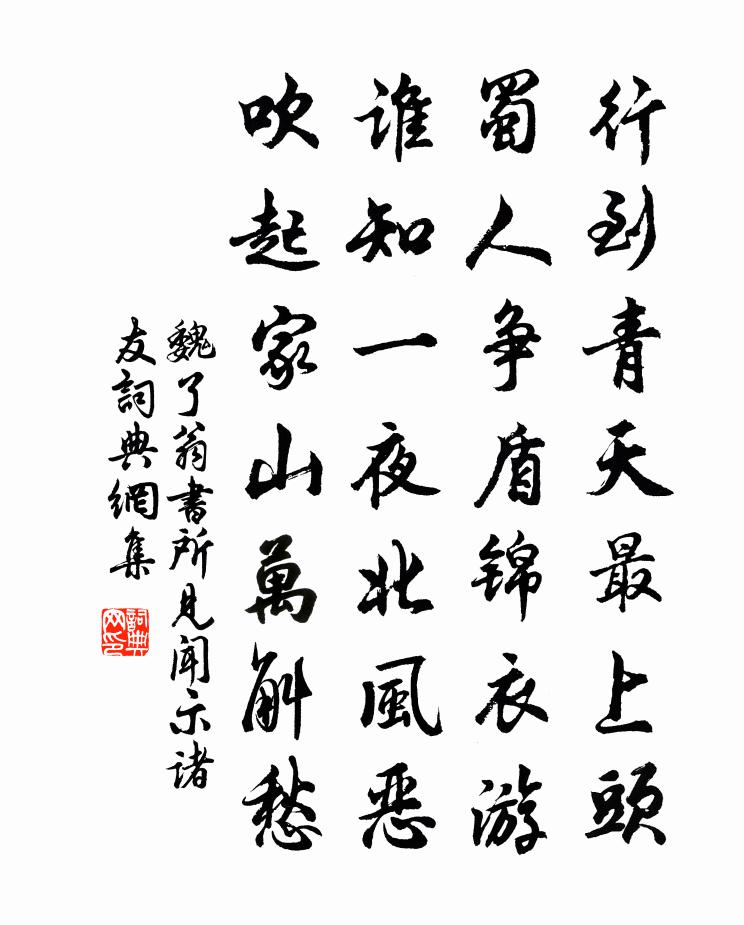 行到青天最上頭
蜀人争盾锦衣游
谁知一夜北風恶
吹起家山萬斛愁
魏了翁書所見闻示诸
友詞典網集
詞典
网印